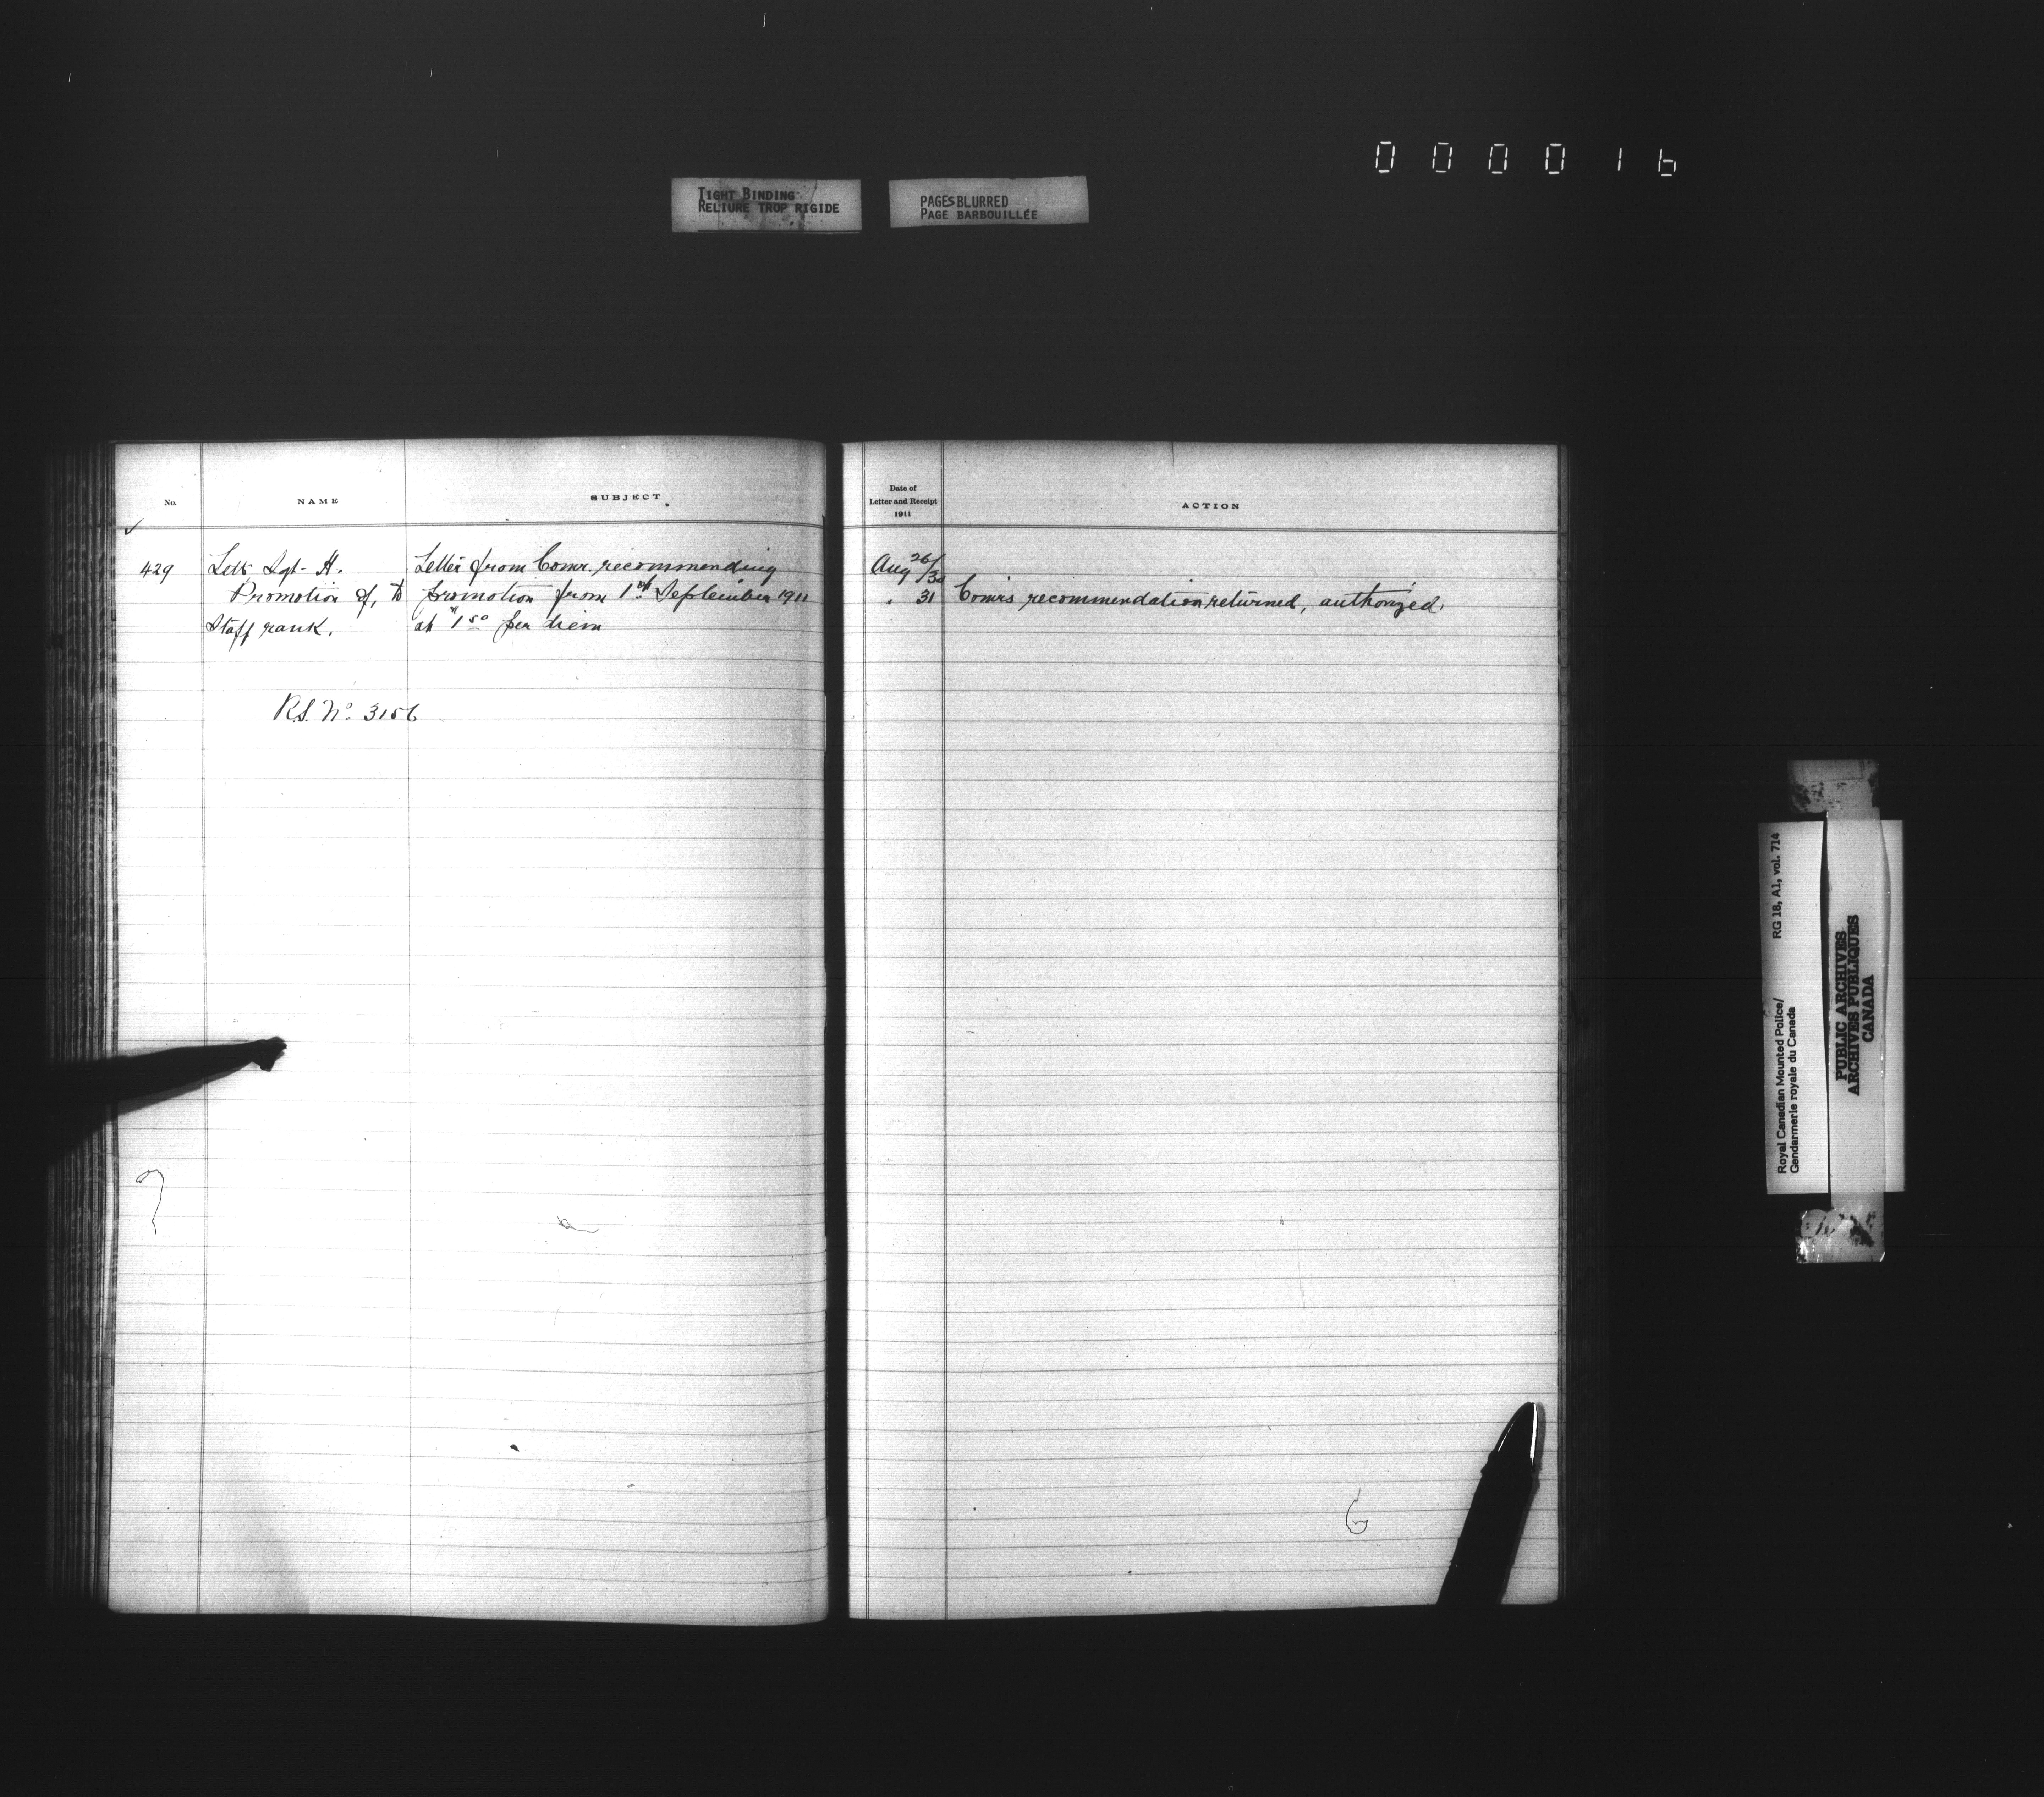 0 0 0 0 1 6
TIGHT BINDING
RELIURE TROP RIGIDE
PAGES BLURRED
PAGE BARBOUILLÉE
No. NAME SUBJECT
429 Lett Sgt. H. Letter from Comr. recommending
Promotion of, to promotion from 1st September 1911
Staff rank. at $1.50 per diem
R.S. No. 3156
Date of
Letter and Receipt
1911
ACTION
Aug 26/30
" 31 Comr's recommendation returned, authorized.
6
Royal Canadian Mounted Police/ RG 18, A1, vol. 714
Gendarmerie royale du Canada
PUBLIC ARCHIVES
ARCHIVES PUBLIQUES
CANADA